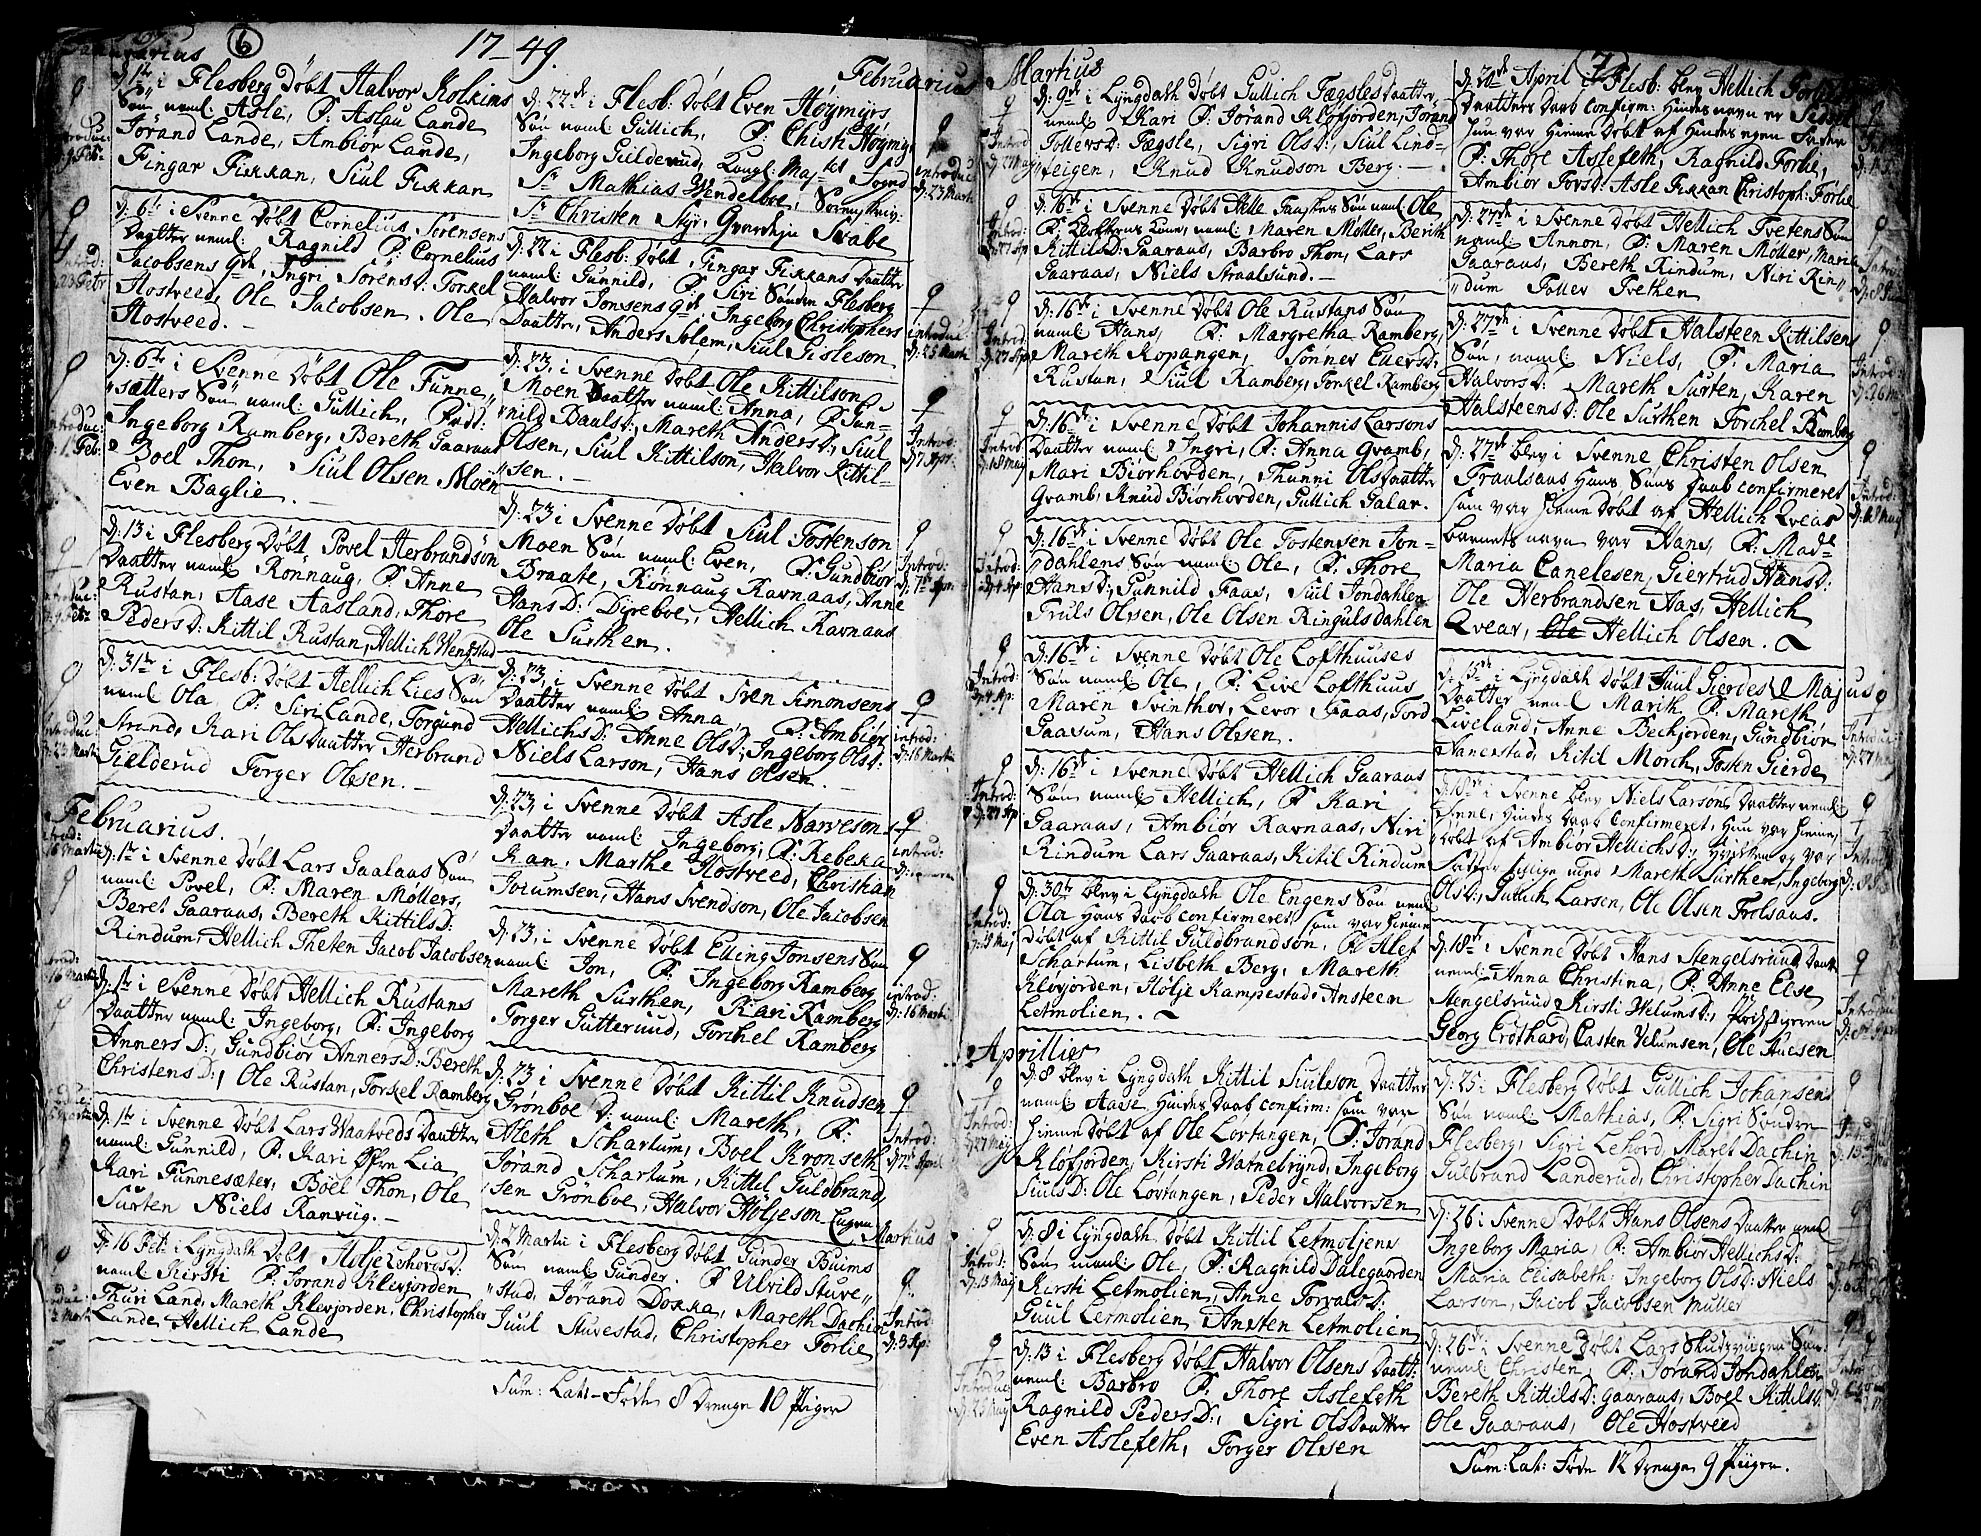 6
17-49.
Januarius
d. 1te i Flesberg Döbt Halvor Kolkins
Søn naml: Asle, F: Aslau Lande
Jörand Lande, Ambiör Lande,
Fingar Fikkan, Siul Fikkan
Introduc:
d. 9 Feb:
d. 6te i Svenne Döbt Cornelius Sörensens
Daatter naml: Ragnild F: Cornelius
Jacobsens qde, Ingri Sörens D: Torkel
Hostveed, Ole Jacobsen. Ole
Hostveed.
Introd:
23 Febr
d: 6te i Svenne Döbt Ole Funne„
„sætters Søn naml: Gullich, Fadd:
Ingeborg Ramberg, Bereth Gaaraas
Boel Thon, Siul Olsen Moen
Even Baglie.
Introduc:
d: 1. Feb:
d: 13 i Flesberg Döbt Povel Herbrandsön
Daatter naml: Rönnaug, F: Anne
Rustan, Aase Aasland, Thore
Peders D: Kittil Rustan, Hellich Wengstad
Introduc:
d: 9 Feb:
d: 31te i Flesb: Döbt Hellich Lies Søn
naml Ola, F: Siri Lande, Torgund
Strand, Kari Olsdaatter Herbrand
Gielderud Torger Olesen.
Introduc
d: 23 Martii
Februarius.
d: 1te i Svenne Döbt Lars Gaalaas Søn
naml: Povel, F: Maren Møllers,
Beret Gaaraas, Bereth Kittils D:
Rindum, Hellich Theten Jacob Jacobsen
Introd:
16 Martii
d: 1te i Svenne Döbt Hellich Rustans
Daatter naml: Ingeborg, F: Ingeborg
Anners D:, Gundbiör Anners D: Bereth
Christens D:, Ole Rustan, Torkel Ramberg
Introd:
16 Martii
d: 1te i Svenne Döbt Lars Waatveds Daatter
naml: Gunnild, F: Kari Øfre Lia
Kari Funnesæter, Boel Thon, Ole
Surten Niels Ranvüg.
d: 16 Feb: i Lyngdahl Döbt
naml Kirsti F: Jorand Klevjorden
Thuri Land, Mareth Klevjorden, Christopher
Lande, Hellich Lande
Februarius
d: 22de i Flesb: Döbt Even Höymyrs
Søn naml: Gullich, F: Christi Höymyr
Ingeborg Gielderud, Kongl: Maj-tet Fogd
Sr Mathias Wendelboe, Sorenskriv:
Sr Christen Skyr, Gvarchin Svabe
Introduc
d: 23 Marti
d: 22 i Flesb: Döbt Fingar Fikkans Daatter
naml: Gunnild, F: Siri Søndre Flesberg
Halvor Jonsens qde, Ingeborg Christophers
Daatter, Anders Solem, Siul Lisleson
introduc:
d: 25 Marti
d: 23, i Svenne Döbt Ole Kittilson
Moen Daatter naml: Anna, F: Gun-
nild Pauls D:, Mareth Anders D:, Siul
Olsen, Siul Kittilson, Halvor Kittil-
sen.
Introd:
d: 7 Apr:
d: 23 i Svenne Döbt Siul Tostenson
Moen Søn naml: Even, F: Gundbiör
Braate, Rönnaug Ravnaas, Anne
Hans D: Direboe, Hellich Ravnaas
Ole Surthen.
Introd:
d: 7te Apr
d: 23, i Svenne Döbt Sven Simonsens
Daatter naml: Anna, F: Ambiör
Hellichs D: Anne Ols D:, Ingeborg Ols D:
Niels Larson, Hans Olsen.
introd:
d: 16 Martii
d: 23, i Svenne Döbt Asle Narvesons
Daatter naml: Ingeborg, F: Rebeka
Ran, Marthe Hostveed, Christian
Jorumsen, Hans Svendson, Ole Jacobsen
introd:
d: 23, i Svenne Döbt Elling Jonsens Søn
naml: Jon, F: Ingeborg Ramberg
Mareth Surthen, Kari Ramberg
Torger Gutteruud, Torchel Ramberg
introd:
d: 16 Marti
d: 23 i Svenne Döbt Kittil Knudsen
Grönboe D: naml: Mareth, F:
Aleth Schartum, Boel Kronseth
Jörand Schartum, Kittil Guldbrand
sen Grönboe, Halvor Höljeson Engen
Introd:
d: 7de April
Martius
d: 2 Martii i Flesberg Döbt Gunder Buims
Søn naml: Gunder. F: Ulvild Stuve„
„stad, Jorand Dokka, Mareth Dachin
Juul Stuvestad, Christopher Forlie
Introd
d: 3 Ap:
Sum: Lat:- Föde 8 Drenge 10 Piger
7
Martius
d: 9de i Lyngdahl Döbt Gullich Fægsles Daatter„
neml Kari F: Jorand Klöfjorden, Jorand
Tollevs D: Fægsle, Sigri Ols D:, Siul Lind=
steigen, Knud Knudson Berg.
Introd
d: 2 Maj
d: 16de i Svenne Döbt Helle Søn naml Ole
F: naml: Maren Møller, Bereth
Kittils D: Gaaraas, Barbro Thon, Lars
Gaaraas, Niels Straalsund.
Introd:
d: 27 Ap
d: 16de i Svenne Döbt Ole Rustans Søn
naml: Hans, F: Margretha Ramberg,
Mareth Kopangen, Sønnev Ellevs D:
Rustan, Siul Ramberg, Torkel Ramberg
Introd:
d: 27 Ap
d: 16de i Svenne Döbt Johannis Larsons
Daatter naml: Ingri, F: Anna Gvamb,
Mari Biorhovden, Thunni Olsdaatter
Gvamb, Knud Biorhovden, Gullich Galar.
Introd
d: 18 Maj
d: 16de i Svenne Döbt Ole Tostensen Jon=
dahlens Søn naml: Ole, F: Thore
Hans D:, Gunnild Faas, Siul Jondahlen
Truls Olsen, Ole Olsen Ringulsdahlen
Introd:
d: 4 Ap
d: 16de i Svenne Döbt Ole Lofthuuses
Søn naml: Ole, F: Live Lofthuus
Maren Svinthor, Levor Faas, Tord
Gaasum, Hans Olsen.
Introd:
d: 4 Ap:
d: 16de i Svenne Döbt Hellich Gaaraas
Søn naml Hellich, F: Kari
Gaaraas, Ambiör Ravnaas, Niri
Rindum Lars Gaaraas, Kitil Rindum
Introd:
d: 27 Ap
d: 30te blev i Lyngdahl Ole Engens Søn neml
Ola hans Daab confirmeret, som var hiemme
døbt af Kittil Guldbrandson, F: Alef
Schartum, Lisbeth Berg, Mareth
Klovjorden, Holje Kampestad, Ansteen
Letmolien.
Introd:
d: 8 Maj
Aprillies
d: 8 blev i Lyngdahl Kittil Siulson Daatter
naml Aase hindes Daab confirm: som var
hiemme døbt af Ole Lovtangen, F: Jorand
Kløfjorden, Kirsti Watnebrynd, Ingeborg
Siuls D: Ole Lovtangen, Peder Halvorsen
Introd:
d: 27 Maj
d: 8 i Lyngdahl Döbt Kittil Letmoljens
Søn naml: Ole, F: Ragnild Dalegaarden
Kirsti Letmolien, Anne Torvalds D:
Guul Letmolien, Ansten Letmolien
Introd:
d: 15 Maj
d: 13 i Flesberg Döbt Halvor Olsens Daatt:
neml: Barbro F: Thore Aslefeth
Ragnild Peders D:, Sigri Olsdaatter
Even Aslefeth, Torger Olsen
Introduc
d: 25 Maj
d: 24de April i Flesb: blev Hellich Forlies
Daatters Daab confirm: hindes navn er Sidsel
hun var hiemme døbt af hindes egen Fader
F: Thore Aslefeth, Ragnild Forlie,
Ambiör Tovs D: Asle Fikkan Christoph: Forlie
d: 27de i Svenne Döbt Hellich Tvetens Søn
naml: Annon, F: Maren Møller, Maria
Gaaraas, Bereth Rindum, Niri Rin„
„dum Tollev Tvethen
Introd:
d: 27de i Svenne Döbt Halsteen Kittilsens
Søn, naml: Niels, F: Maria
Halvors D: Mareth Surten, Karen
Halsteens D: Ole Surthen Torchel Ramberg
Introd:
d: 16 Maj
d: 27de blev i Svenne Christen Olsen
Traalsaas Hans Søns Daab confirmeret
som var hiemme døbt af Hellich Qvear
barnets navn var Hans, F: Madle
Maria Canelesen, Giertrud Hans D:
Ole Herbrandsen Aas, Hellich
Qvear, Hellich Olsen.
Introd:
Majus
d: 15de i Lyngdahl Döbt Juul Gierdes
Daatter neml Marith F: Mareth
Liveland, Anne Bechjorden, Gundbiör
Hanestad, Kitil Morch, Tosten Gierde
Introduc:
d: 27 Maj
d: 18de i Svenne blev Niels Larsöns Daatter neml:
Anne, hindes Daab confirmeret, hun var hiemme
døbt af Ambiör Hellichs D:, hvilken og var
Fadder tillige med Mareth Surthen, Ingeborg
Ols D:, Gullich Larsen, Ole Olsen Trolsaas.
Introd
d: 18de i Svenne Döbt Hans Stengelsruud Daatt
neml: Anna Christina, F: Anne Else
Stengelsruud Kirsti Velums D:,
Georg Erdthard, Casten Velumsen, Ole Huesen
d: 25 i Flesberg Döbt Gullich Johansens
Søn naml: Mathias, F: Sigri Søndre
Flesberg, Sigri Lekord, Maret Dachin
Gulbrand Landerud, Christopher Dachin
d: 26 i Svenne Döbt Hans Olsens Daatter neml
Ingeborg Maria, F: Ambiör Hellichs D:
Maria Elisabeth: Ingeborg Ols D: Niels
Larson, Jacob Jacobsen Muller
d: 26de i Svenne Döbt Lars Skudsvigen Søn
neml: Christen, F: Jorand Jondahlen
Bereth Kittils D: Gaaraas, Boel Kittils D:
Ole Gaaraas, Ole Hostveed
Sum: Lat: Föde 12 Drenge 9 Piger.